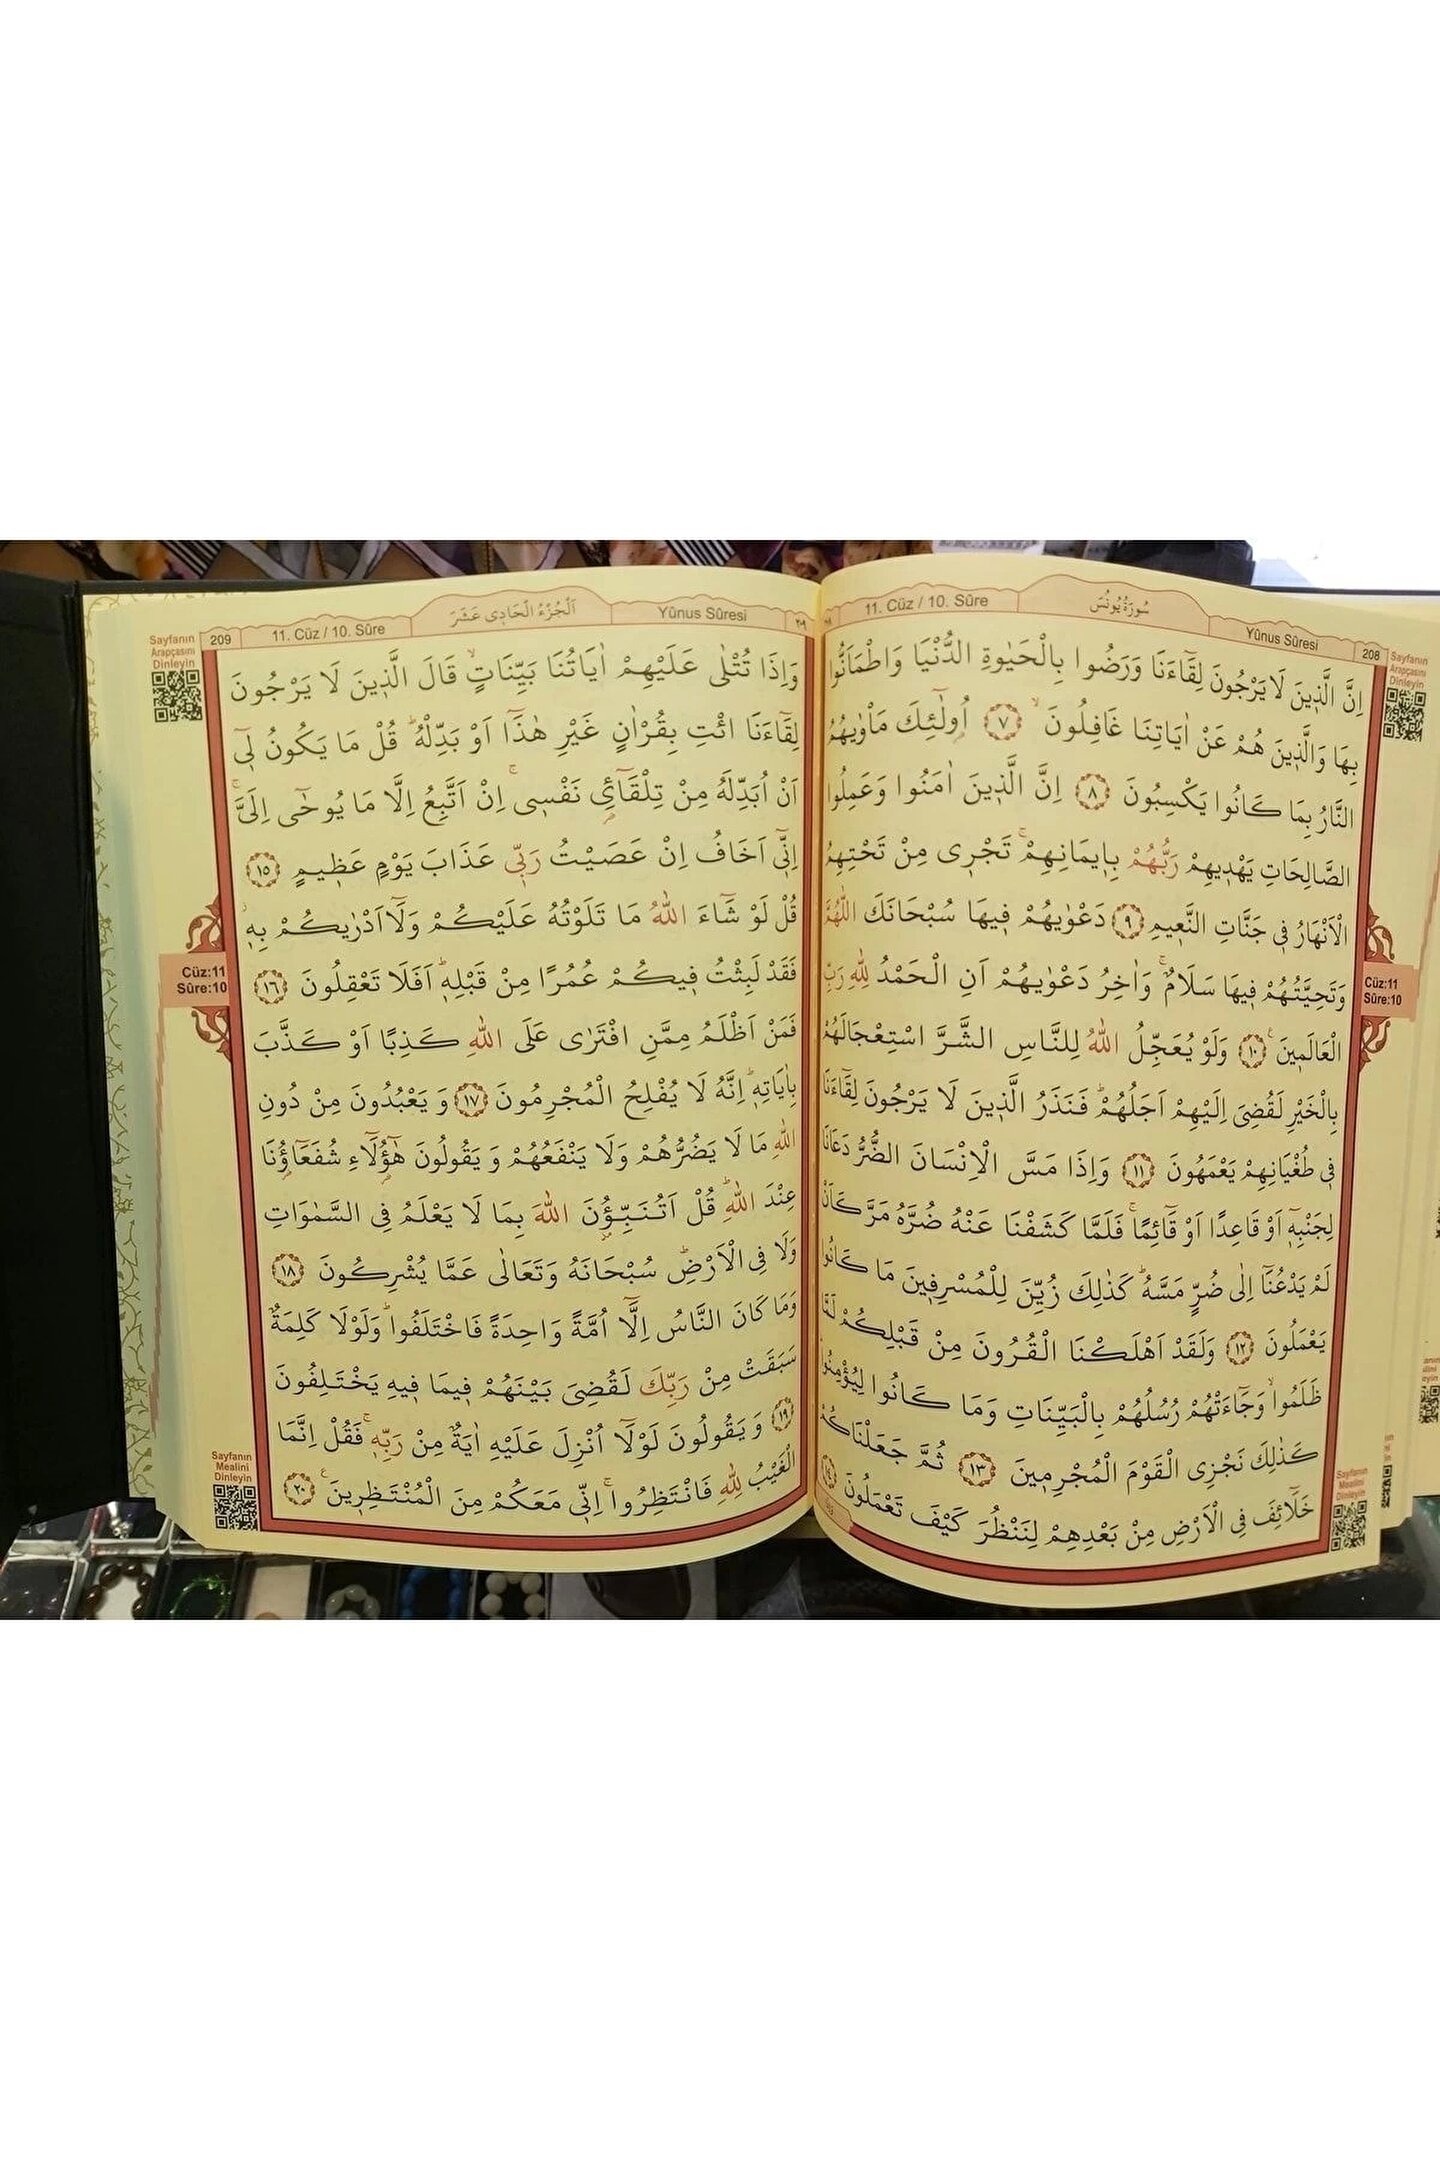 208
Yûnus Sûresi
سُورَةُ يُونُسَ
11. Cüz / 10. Sûre
Sayfanın
Arapçasını
Dinleyin
اِنَّ الَّذ۪ينَ لَا يَرْجُونَ لِقَٓاءَنَا وَرَضُوا بِالْحَيٰوةِ الدُّنْيَا وَاطْمَاَنُّوا
بِهَا وَالَّذ۪ينَ هُمْ عَنْ اٰيَاتِنَا غَافِلُونَۙ ﴿٧﴾ اُو۬لٰٓئِكَ مَأْوٰيهُمُ
النَّارُ بِمَا كَانُوا يَكْسِبُونَ ﴿٨﴾ اِنَّ الَّذ۪ينَ اٰمَنُوا وَعَمِلُوا
الصَّالِحَاتِ يَهْد۪يهِمْ رَبُّهُمْ بِا۪يمَانِهِمْۚ تَجْر۪ي مِنْ تَحْتِهِمُ
الْاَنْهَارُ ف۪ي جَنَّاتِ النَّع۪يمِ ﴿٩﴾ دَعْوٰيهُمْ ف۪يهَا سُبْحَانَكَ اللّٰهُمَّ
وَتَحِيَّتُهُمْ ف۪يهَا سَلَامٌۚ وَاٰخِرُ دَعْوٰيهُمْ اَنِ الْحَمْدُ لِلّٰهِ رَبِّ
الْعَالَم۪ينَ۟ ﴿١٠﴾ وَلَوْ يُعَجِّلُ اللّٰهُ لِلنَّاسِ الشَّرَّ اسْتِعْجَالَهُمْ
بِالْخَيْرِ لَقُضِيَ اِلَيْهِمْ اَجَلُهُمْۜ فَنَذَرُ الَّذ۪ينَ لَا يَرْجُونَ لِقَٓاءَنَا
ف۪ي طُغْيَانِهِمْ يَعْمَهُونَ ﴿١١﴾ وَاِذَا مَسَّ الْاِنْسَانَ الضُّرُّ دَعَانَا
لِجَنْبِه۪ٓ اَوْ قَاعِدًا اَوْ قَٓائِمًاۚ فَلَمَّا كَشَفْنَا عَنْهُ ضُرَّهُ مَرَّ كَاَنْ
لَمْ يَدْعُنَٓا اِلٰى ضُرٍّ مَسَّهُۜ كَذٰلِكَ زُيِّنَ لِلْمُسْرِف۪ينَ مَا كَانُوا
يَعْمَلُونَ ﴿١٢﴾ وَلَقَدْ اَهْلَكْنَا الْقُرُونَ مِنْ قَبْلِكُمْ لَمَّا
ظَلَمُواۙ وَجَٓاءَتْهُمْ رُسُلُهُمْ بِالْبَيِّنَاتِ وَمَا كَانُوا لِيُؤْمِنُواۜ
كَذٰلِكَ نَجْزِي الْقَوْمَ الْمُجْرِم۪ينَ ﴿١٣﴾ ثُمَّ جَعَلْنَاكُمْ
خَلَٓائِفَ فِي الْاَرْضِ مِنْ بَعْدِهِمْ لِنَنْظُرَ كَيْفَ تَعْمَلُونَ ﴿١٤﴾
Cüz:11
Sûre:10
Sayfanın
Mealini
Dinleyin
٢٠٩
Yûnus Sûresi
اَلْجُزْءُ الْحَاد۪ي عَشَرَ
11. Cüz / 10. Sûre
209
Sayfanın
Arapçasını
Dinleyin
وَاِذَا تُتْلٰى عَلَيْهِمْ اٰيَاتُنَا بَيِّنَاتٍۙ قَالَ الَّذ۪ينَ لَا يَرْجُونَ
لِقَٓاءَنَا ائْتِ بِقُرْاٰنٍ غَيْرِ هٰذَٓا اَوْ بَدِّلْهُۜ قُلْ مَا يَكُونُ ل۪ٓي
اَنْ اُبَدِّلَهُ مِنْ تِلْقَٓائِ۬ نَفْس۪يۚ اِنْ اَتَّبِعُ اِلَّا مَا يُوحٰٓى اِلَيَّۚ
اِنّ۪ٓي اَخَافُ اِنْ عَصَيْتُ رَبّ۪ي عَذَابَ يَوْمٍ عَظ۪يمٍ ﴿١٥﴾
قُلْ لَوْ شَٓاءَ اللّٰهُ مَا تَلَوْتُهُ عَلَيْكُمْ وَلَٓا اَدْرٰيكُمْ بِه۪ۘ
فَقَدْ لَبِثْتُ ف۪يكُمْ عُمُرًا مِنْ قَبْلِه۪ۜ اَفَلَا تَعْقِلُونَ ﴿١٦﴾
فَمَنْ اَظْلَمُ مِمَّنِ افْتَرٰى عَلَى اللّٰهِ كَذِبًا اَوْ كَذَّبَ
بِاٰيَاتِه۪ۜ اِنَّهُ لَا يُفْلِحُ الْمُجْرِمُونَ ﴿١٧﴾ وَيَعْبُدُونَ مِنْ دُونِ
اللّٰهِ مَا لَا يَضُرُّهُمْ وَلَا يَنْفَعُهُمْ وَيَقُولُونَ هٰٓؤُ۬لَٓاءِ شُفَعَٓاؤُ۬نَا
عِنْدَ اللّٰهِۜ قُلْ اَتُنَبِّؤُ۫نَ اللّٰهَ بِمَا لَا يَعْلَمُ فِي السَّمٰوَاتِ
وَلَا فِي الْاَرْضِۜ سُبْحَانَهُ وَتَعَالٰى عَمَّا يُشْرِكُونَ ﴿١٨﴾
وَمَا كَانَ النَّاسُ اِلَّٓا اُمَّةً وَاحِدَةً فَاخْتَلَفُواۜ وَلَوْلَا كَلِمَةٌ
سَبَقَتْ مِنْ رَبِّكَ لَقُضِيَ بَيْنَهُمْ ف۪يمَا ف۪يهِ يَخْتَلِفُونَ
﴿١٩﴾ وَيَقُولُونَ لَوْلَٓا اُنْزِلَ عَلَيْهِ اٰيَةٌ مِنْ رَبِّه۪ۚ فَقُلْ اِنَّمَا
الْغَيْبُ لِلّٰهِ فَانْتَظِرُواۚ اِنّ۪ي مَعَكُمْ مِنَ الْمُنْتَظِر۪ينَ۟ ﴿٢٠﴾
Cüz:11
Sûre:10
Sayfanın
Mealini
Dinleyin